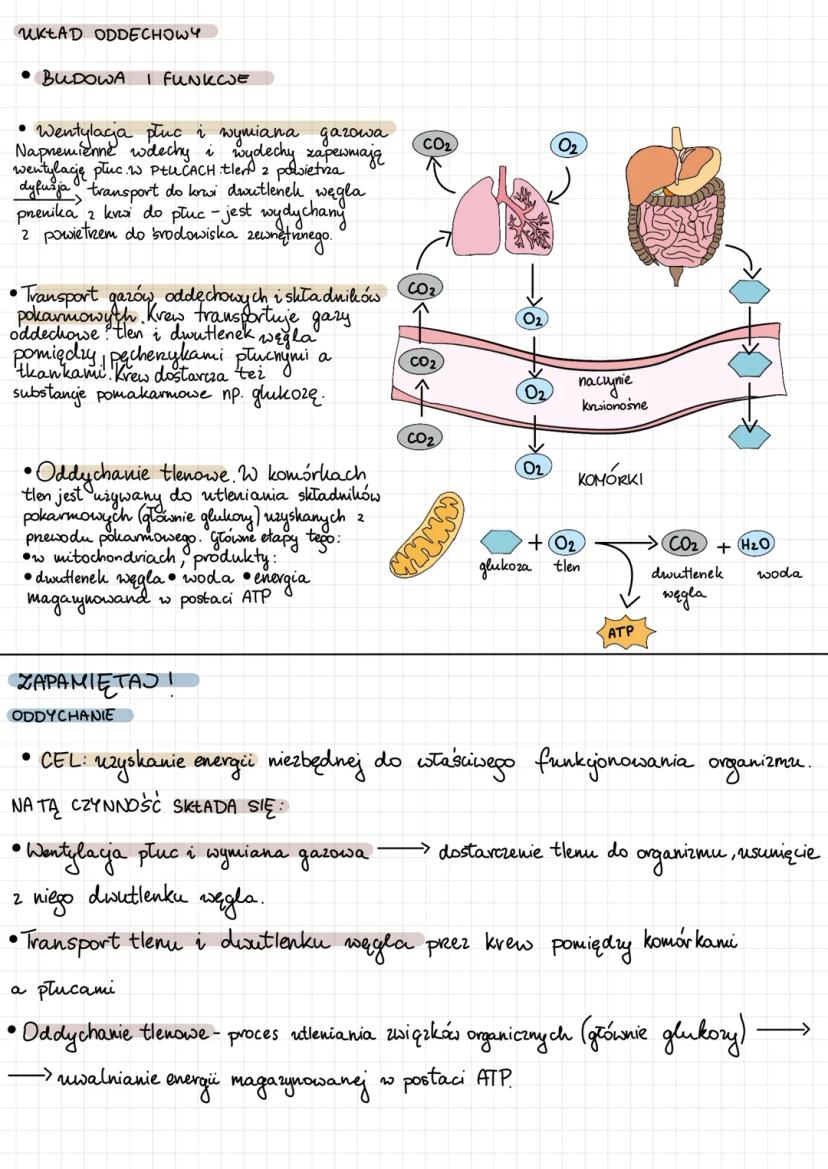 UKŁAD ODDECHOWY
• BUDOWA I FUNKCJE
• Wentylacja płuc i wymiana gazowa
Naprzemienne wdechy i wydechy zapewniają
wentylację płuc. W PŁUCACH tlen z powietrza
dyfuzja → transport do krwi dwutlenek węgla
przenika z krwi do płuc - jest wydychany
z powietrzem do środowiska zewnętrznego.
• Transport gazów oddechowych i składników
pokarmowych. Krew transportuje gazy
oddechowe: tlen i dwutlenek węgla
pomiędzy pęcherzykami płucnymi a
tkankami. Krew dostarcza też
substancje pomakarmowe np. glukozę.
• Oddychanie tlenowe. W komórkach
tlen jest używany do utleniania składników
pokarmowych (głównie glukozy) uzyskanych z
przewodu pokarmowego. Główne etapy tego:
• w mitochondriach, produkty:
• dwutlenek węgla • woda • energia
magazynowana w postaci ATP
CO2
O2
CO2
O2
CO2
O2
naczynie
krwionośne
CO2
O2
KOMÓRKI
+ O2 → CO2 + H2O
glukoza tlen dwutlenek woda
węgla
ATP
ZAPAMIĘTAJ!
ODDYCHANIE
• CEL: uzyskanie energii niezbędnej do właściwego funkcjonowania organizmu.
NA TĄ CZYNNOŚĆ SKŁADA SIĘ:
• Wentylacja płuc i wymiana gazowa → dostarczenie tlenu do organizmu, usunięcie
z niego dwutlenku węgla.
• Transport tlenu i dwutlenku węgla przez krew pomiędzy komórkami
a płucami
• Oddychanie tlenowe - proces utleniania związków organicznych (głównie glukozy) →
→ uwalnianie energii magazynowanej w postaci ATP.